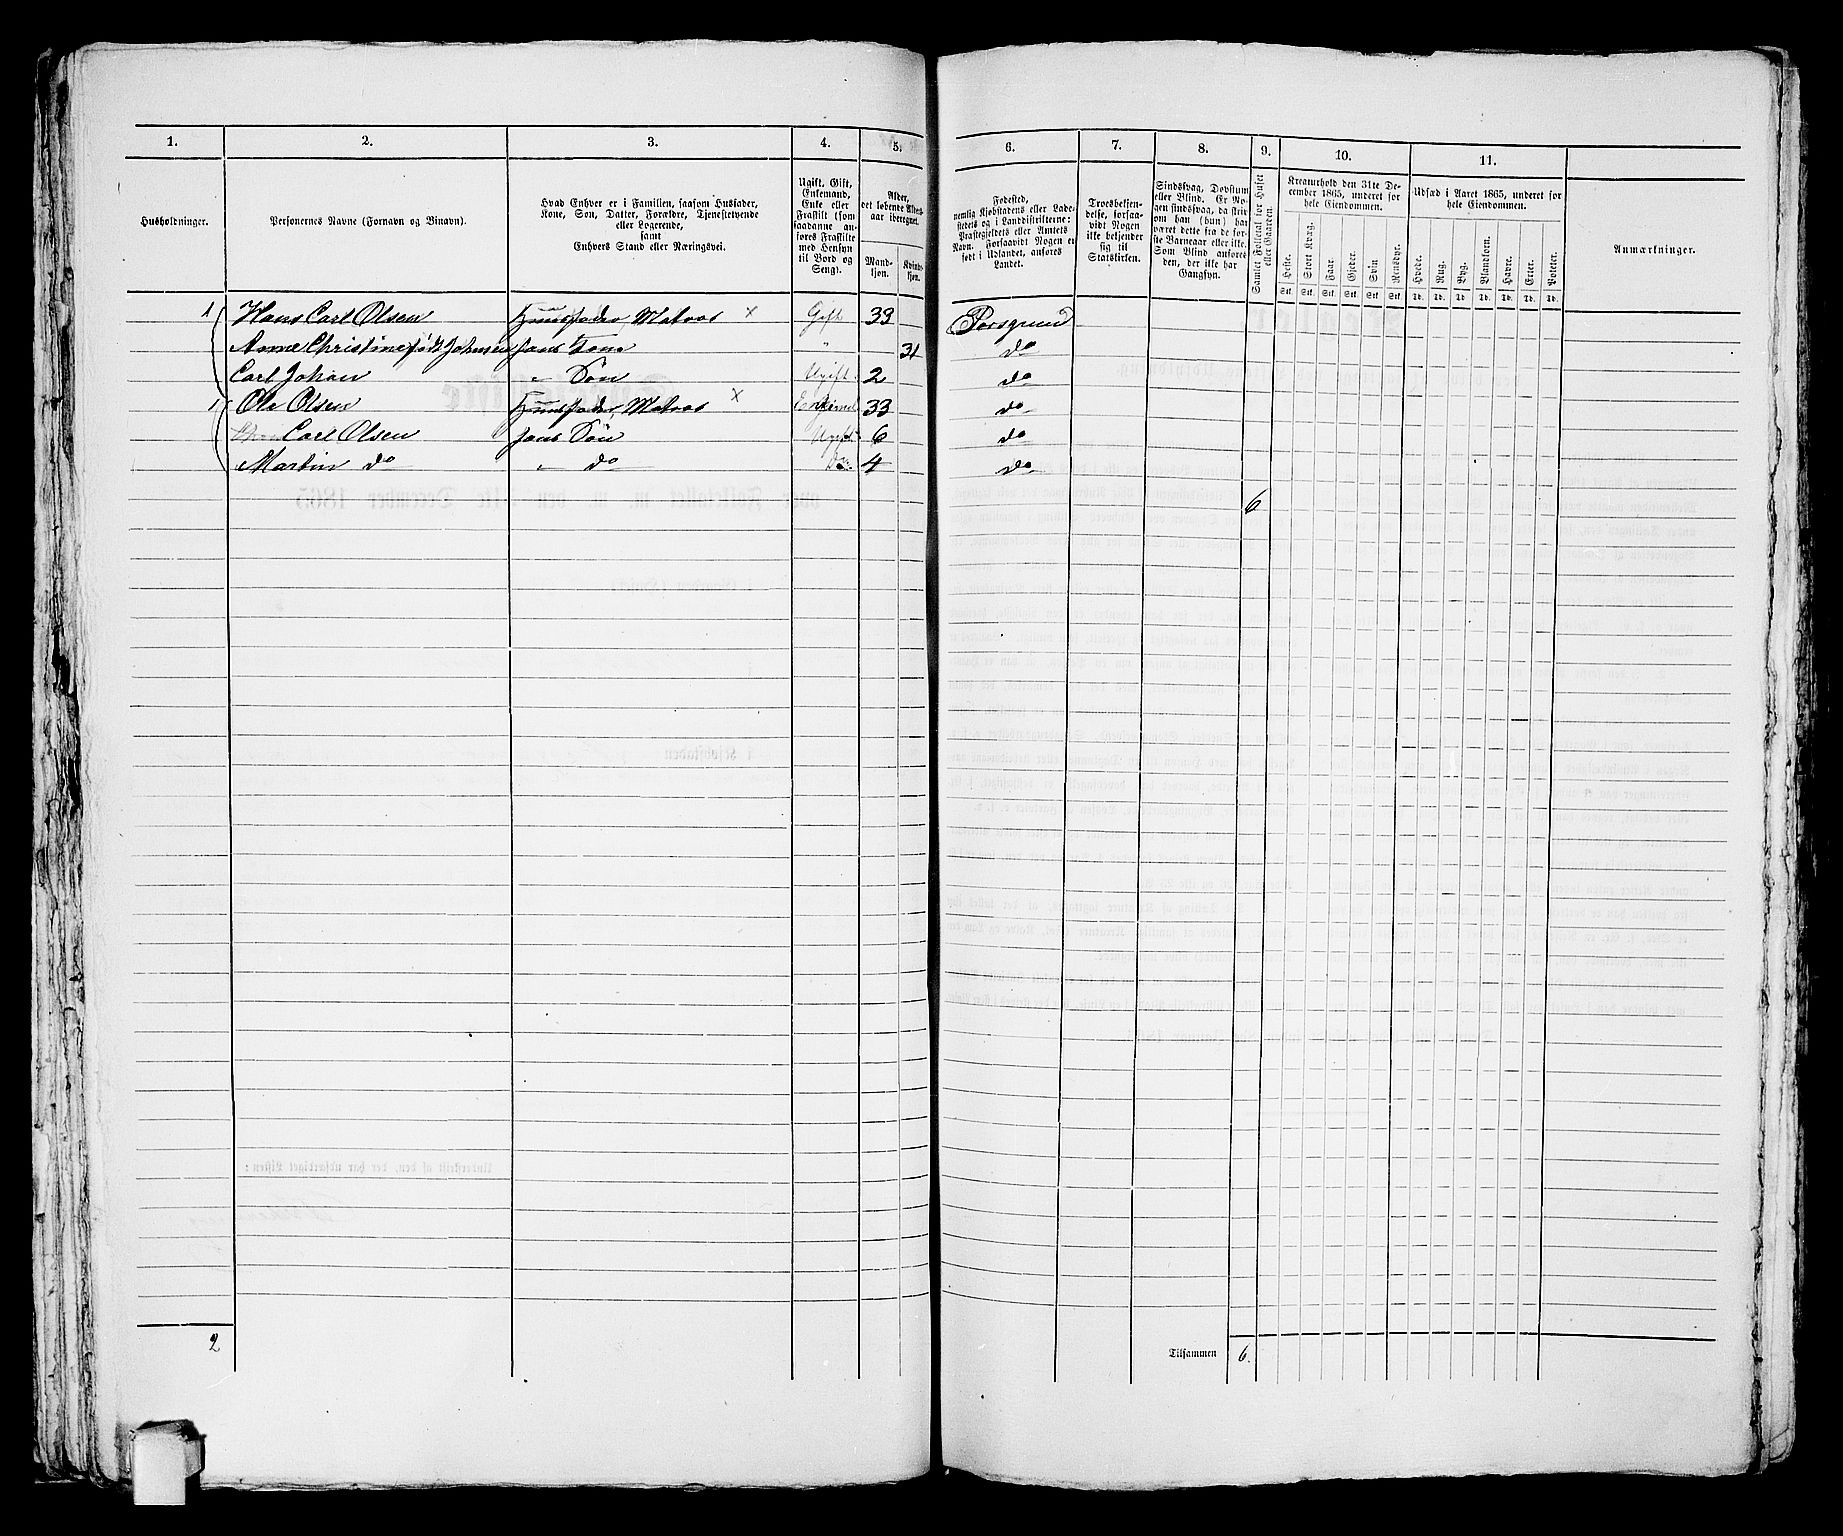 1. 2. 3. 4. 5. 6. 7. 8. 9. 10. 11.
Husholdninger.
Personernes Navne (Fornavn og Binavn).
Hvad Enhver er i Familien, saasom Husfader,
Kone, Søn, Datter, Forældre, Tjenestetyende
eller Logerende,
samt
Enhvers Stand eller Næringsvei.
Ugift, Gift,
Enkemand,
Enke eller
Fraskilt (som
saadanne an-
føres Fraskilte
med Hensyn
til Bord og
Seng).
Alder,
det løbende Alders-
aar iberegnet.
Mand-
kjøn.
Kvind-
kjøn.
Fødested,
nemlig Kjøbstadens eller Lade-
stedets og i Landdistrikterne:
Præstegjeldets eller Amtets
Navn. Forsaavidt Nogen er
født i Udlandet, anføres
Landet.
Troesbekjen-
delse, forsaa-
vidt Nogen
ikke bekjender
sig til
Statskirken.
Sindssvag, Døvstum
eller Blind. Er No-
gen sindssvag, da skri-
ves om han (hun) har
været dette fra de før-
ste Barneaar eller ikke.
Som Blind anføres
den, der ikke har
Gangsyn.
Samlet Folketal for Huset
eller Gaarden.
Kreaturhold den 31te De-
cember 1865, underet for
hele Eiendommen.
Heste. Stort Kvæg. Faar. Gjeder. Svin. Rensdyr.
Stk. Stk. Stk. Stk. Stk. Stk.
Udsæd i Aaret 1865, underet for
hele Eiendommen.
Hvede. Rug. Byg. Blandkorn. Havre. Erter. Poteter.
Td. Td. Td. Td. Td. Td. Td.
Anmærkninger.
1 Hans Carl Olsen Huusfader, Matros x Gift 33 Porsgrund
Anne Christine født Johnsen hans Kone " 31 do
Carl Johan " Søn Ugift 2 do
1 Ole Olsen Huusfader, Matros x Enkemd 33 do
Carl Olsen hans Søn Ugift 6 do
Martin do " do do 4 do
6
2 Tilsammen 6.